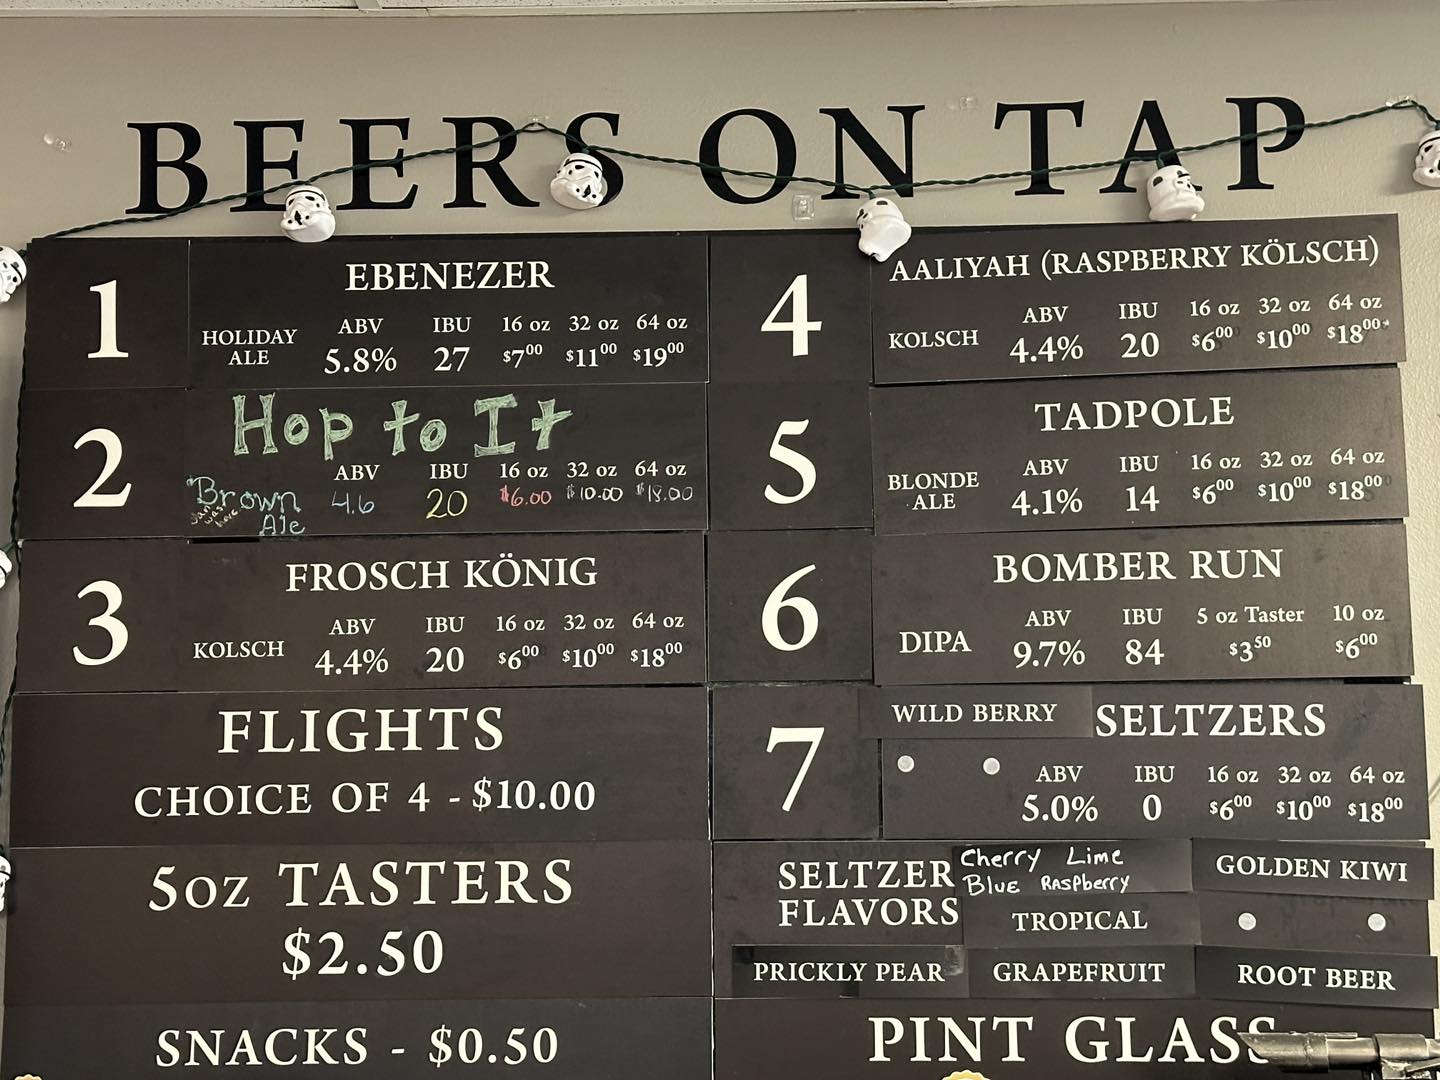 BEERS ON TAP
1
EBENEZER
HOLIDAY ALE
ABV IBU 16 oz 32 oz 64 oz
5.8% 27 $7.00 $11.00 $19.00
2
Hop to It
Brown Ale
ABV IBU 16 oz 32 oz 64 oz
4.6 20 $6.00 $10.00 $18.00
3
FROSCH KÖNIG
KOLSCH
ABV IBU 16 oz 32 oz 64 oz
4.4% 20 $6.00 $10.00 $18.00
FLIGHTS
CHOICE OF 4 - $10.00
5oz TASTERS
$2.50
SNACKS - $0.50
4
AALIYAH (RASPBERRY KÖLSCH)
KOLSCH
ABV IBU 16 oz 32 oz 64 oz
4.4% 20 $6.00 $10.00 $18.00
5
TADPOLE
BLONDE ALE
ABV IBU 16 oz 32 oz 64 oz
4.1% 14 $6.00 $10.00 $18.00
6
BOMBER RUN
DIPA
ABV IBU 5 oz Taster 10 oz
9.7% 84 $3.50 $6.00
7
WILD BERRY SELTZERS
ABV IBU 16 oz 32 oz 64 oz
5.0% 0 $6.00 $10.00 $18.00
SELTZER FLAVORS
Cherry Lime
Blue Raspberry
GOLDEN KIWI
TROPICAL
PRICKLY PEAR GRAPEFRUIT ROOT BEER
PINT GLASS